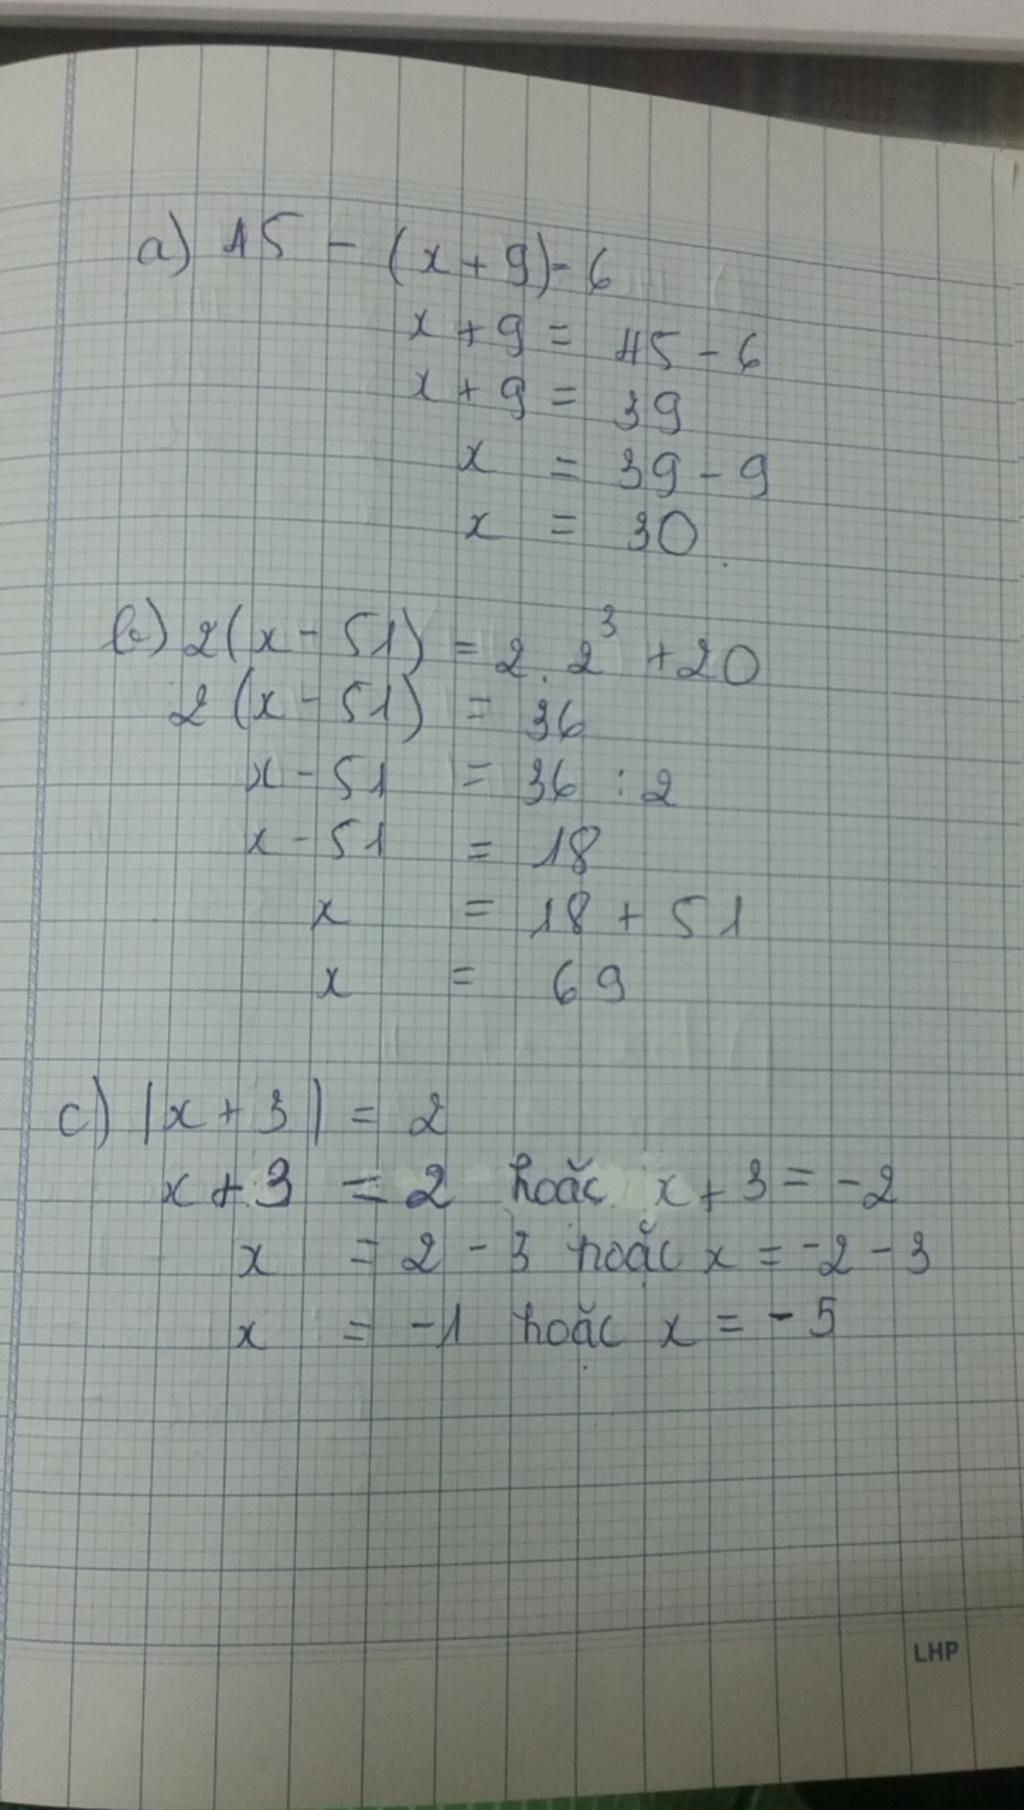 a) 45 - (x + 9) = 6
x + 9 = 45 - 6
x + 9 = 39
x = 39 - 9
x = 30
b) 2(x - 51) = 2. 2³ + 20
2(x - 51) = 36
x - 51 = 36 : 2
x - 51 = 18
x = 18 + 51
x = 69
c) |x + 3| = 2
x + 3 = 2 hoặc x + 3 = -2
x = 2 - 3 hoặc x = -2 - 3
x = -1 hoặc x = -5
LHP